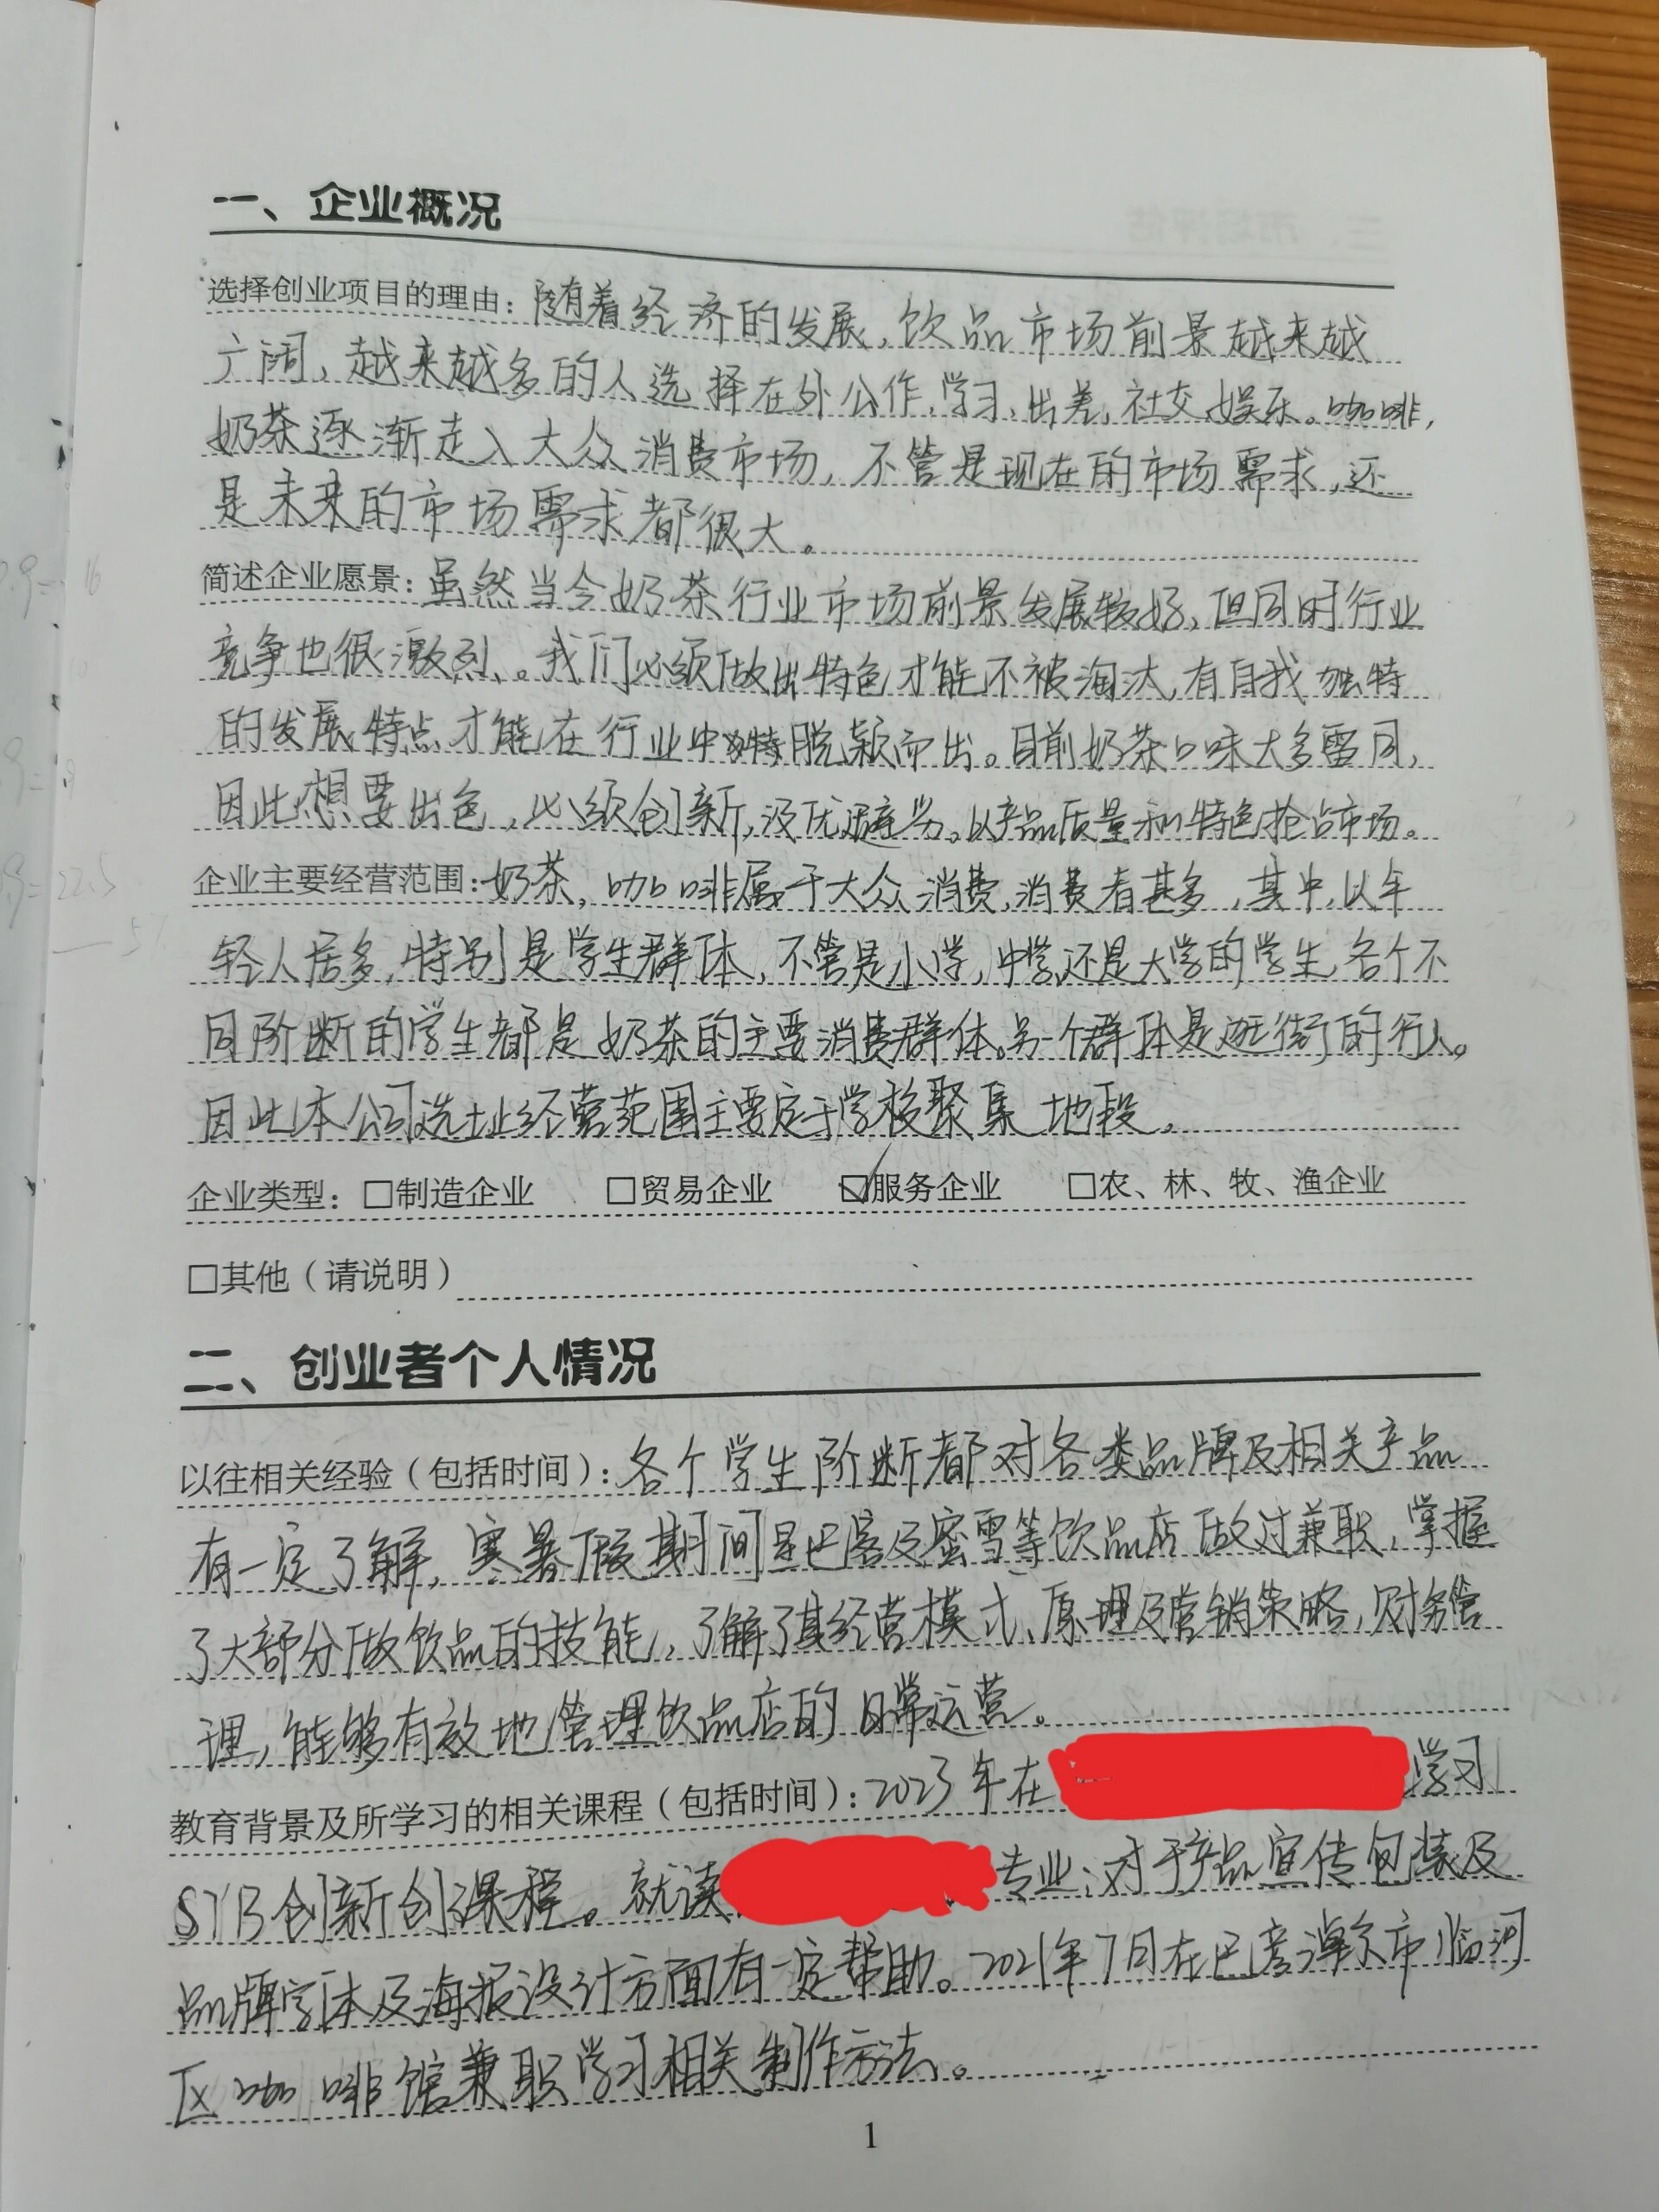 一、企业概况
选择创业项目的理由：随着经济的发展，饮品市场前景越来越
广阔，越来越多的人选择在外公作，学习、出差，社交娱乐。咖啡，
奶茶逐渐走入大众消费市场，不管是现在的市场需求，还
是未来的市场需求都很大。
简述企业愿景：虽然当今奶茶行业市场前景发展较好，但同时行业
竞争也很激烈。我们必须做出特色才能不被淘汰，有自我独特
的发展特点才能在行业中脱颖而出。目前奶茶口味大多雷同，
因此想要出色，必须创新，没优避劣。以产品质量和特色抢占市场。
企业主要经营范围：奶茶，咖啡属于大众消费，消费者甚多，其中，以年
轻人居多，特别是学生群体，不管是小学，中学还是大学的学生，各个不
同阶断的学生都是奶茶的主要消费群体。另一个群体是逛街的行人。
因此本公司选址经营范围主要定于学校聚集地段。
企业类型：□制造企业 □贸易企业 ☑服务企业 □农、林、牧、渔企业
□其他（请说明）
二、创业者个人情况
以往相关经验（包括时间）：各个学生阶断都对各类品牌及相关产品
有一定了解，寒暑假期间星巴客及蜜雪等饮品店做过兼职，掌握
了大部分做饮品的技能，了解了其经营模式、原理及营销策略，财务管
理，能够有效地管理饮品店的日常运营。
教育背景及所学习的相关课程（包括时间）：2023年在 学习
SYB创新创课程。就读 专业；对于产品宣传包装及
品牌字体及海报设计方面有一定帮助。2021年7月在巴彦淖尔市临河
区咖啡馆兼职学习相关制作方法。
1